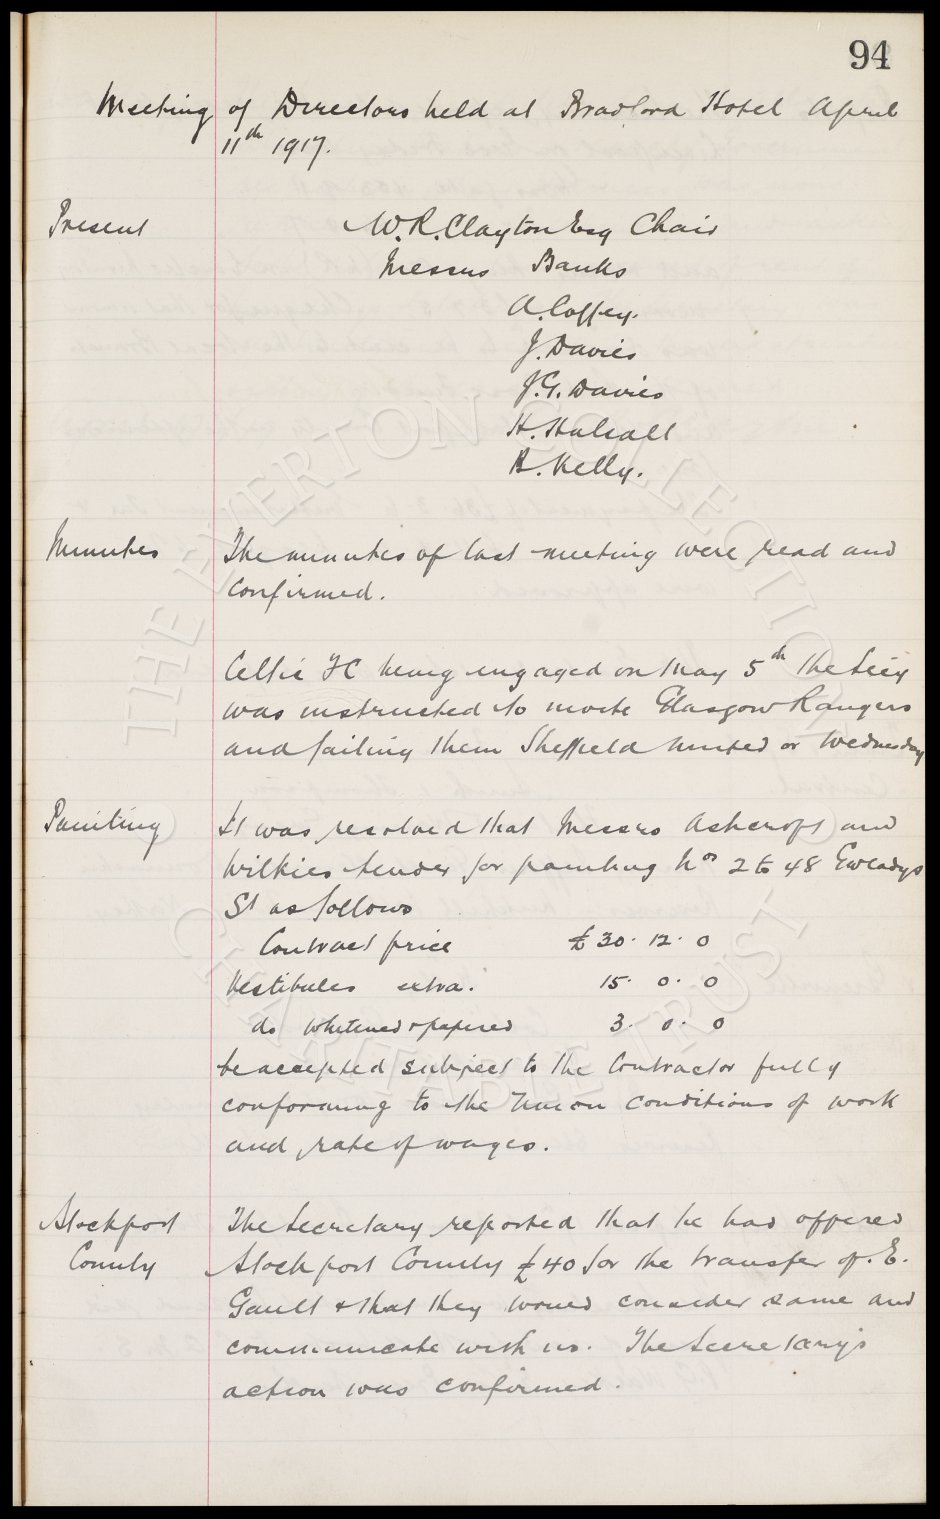 94
Meeting of Directors held at Bradford Hotel April
11th 1917.
Present W.R. Clayton Esq Chair
Messrs Banks
A. Coffey.
J. Davies
J.G. Davies
H. Halsall
B. Kelly.
Minutes The minutes of last meeting were read and
confirmed.
Celtic FC being engaged on May 5th the Secy
was instructed to invite Glasgow Rangers
and failing them Sheffield United or Wednesday
Painting It was resolved that Messrs Ashcroft and
Wilkies tender for painting Nos 2 to 48 Gwladys
St as follows
Contract price £30. 12. 0
Vestibules extra. 15. 0. 0
do whitened & papered 3. 0. 0
be accepted subject to the Contractor fully
conforming to the Union conditions of work
and rate of wages.
Stockport The Secretary reported that he had offered
County Stockport County £40 for the transfer of. E.
Gault & that they would consider same and
communicate with us. The Secretary's
action was confirmed.
THE EVERTON COLLECTION
CHARITABLE TRUST